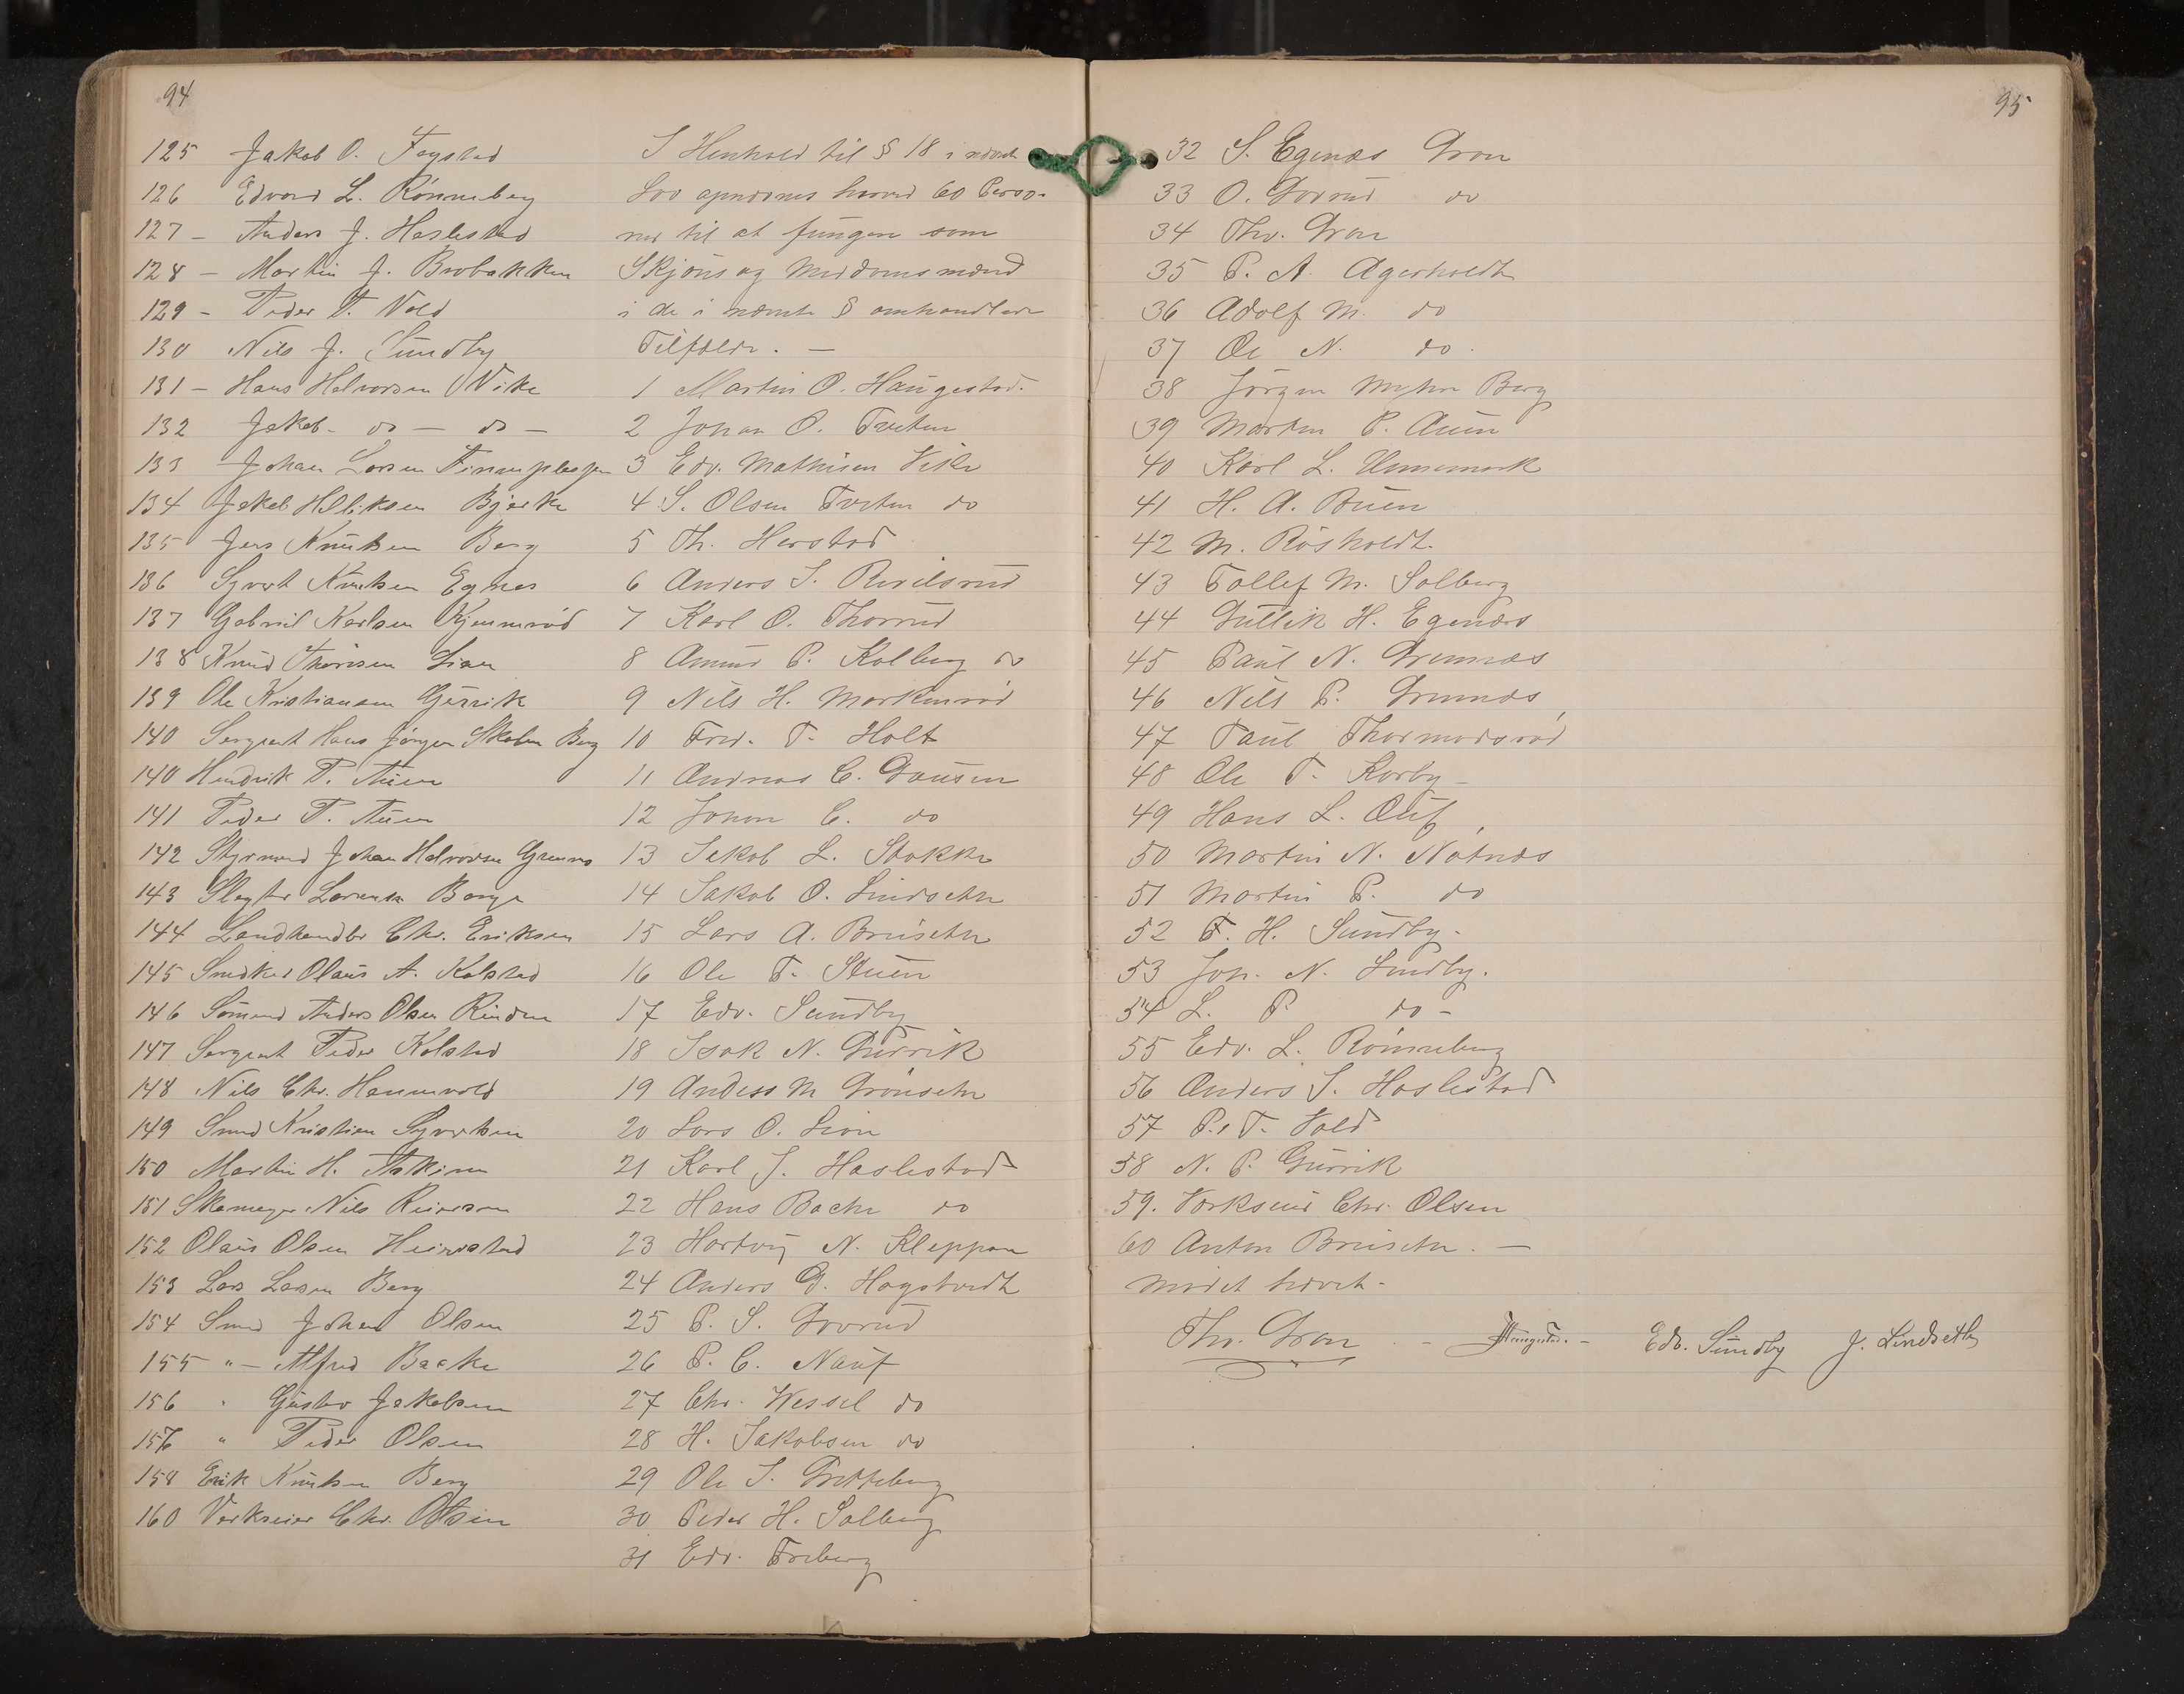 94
125 Jakob O. Fogstad
126 Edvard L. Rønneberg
127 - Anders J. Haslestad
128 - Martin J. Brobakken
129 - Peder T. Vold
130 Nils J. Sundby
131 - Hans Halvorsen Vike
132 Jakob - do - do -
133 Johan Larsen
134 Jakob Bjerke
135 Jens Knutsen Berg
136 Syvert Knutsen Egnes
137 Gabriel Karlsen
138 Knud Thorisen Lian
139 Ole Kristiansen Gurrik
140 Sergent Hans Jørgen Berg
140 Hendrik P. Auen
141 Peder P. Auen
142 Styrmand Johan Halvorsen
143 Slagter Lorensen Berge
144 Landhandler Chr. Eriksen
145 Snedker Olaus A. Kolstad
146 Sømand Anders Olsen Rinden
147 Sergent Peder Kolstad
148 Nils Chr. Hannevold
149 Smed Kristian Syvertsen
150 Martin H. Askim
151 Skomager Nils
152 Olaus Olsen
153 Lars Larsen Berg
154 Smed Johan Olsen
155 " - Alfred Backe
156 " Gustav Jakobsen
157 " Peder Olsen
158 Erik Knutsen Berg
160 Værkseier Chr. Olsen
I Henhold til § 18 i nævnte
Lov opnævnes hermed 60 Perso-
ner til at fungere som
Skjøns og Meddomsmænd
i de i nævnte § omhandlede
Tilfælde. -
1 Martin O. Haugestad.
2 Johan O. Tveten
3 Edv. Mathisen Vike
4 S. Olsen Tveten do
5 Th. Herstad
6 Anders J.
7 Karl O. Thorrud
8 Amund P. Kolberg do
9 Nils H. Markenrød
10 Fred. T. Holt
11 Andreas C. Gausen
12 Johan C. do
13 Jakob L. Stokke
14 Jakob O. Lindseth
15 Lars A. Bruseth
16 Ole T. Stuen
17 Edv. Sundby
18 Isak N. Gurrik
19 Anders M Grønseth
20 Lars O. Lian
21 Karl J. Haslestad
22 Hans Backe do
23 Hartvig N. Kleppan
24 Anders G. Hagstvedt
25 P. S. Govrud
26 P. C. Nauf
27 Chr. Wessel do
28 H. Jakobsen do
29 Ole J. Gretteberg
30 Peder H. Solberg
31 Edv. Freberg
95
32 S. Egenæs Gran
33 O. Govrud do
34 Thv. Gran
35 P. A. Agerholdt
36 Adolf M. do
37 Ole N. do.
38 Jørgen Myhre Berg
39 Marten P. Auen
40 Karl L. Unnemark
41 H. A. Buen
42 M. Røsholdt
43 Tollef M. Solberg
44 Gullik H. Egenæs
45 Paul N. Grennæs
46 Nils P. Grennæs
47 Paul Thormodsrød
48 Ole T. Korby -
49 Hans L. Auf
50 Martin N. Natnæs
51 Martin P. do
52 T. H. Sundby -
53 Joh. N. Sundby.
54 L. P. do -
55 Edv. L. Rønneberg
56 Anders J. Haslestad
57 P. T. Vold
58 N. P. Gurrik
59. Værkseier Chr. Olsen
60 Anton Bruseth. -
Mødet hævet -
Thv. Gran - Haugestad. - Edv. Sundby J. Lindseth